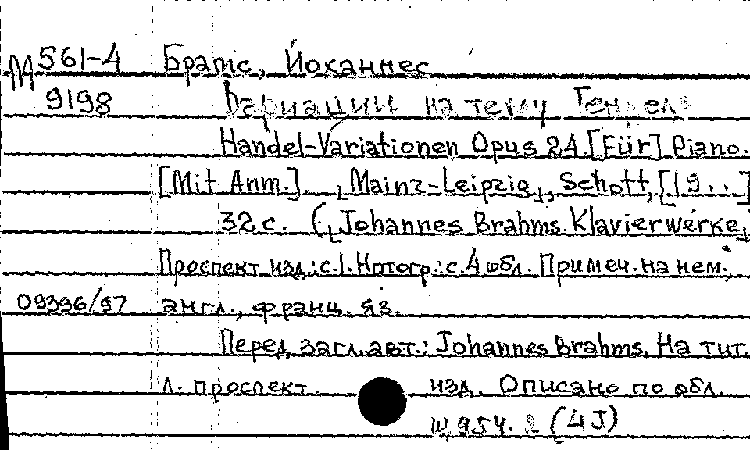 М 561-4 Брамс, Йоханнес
9198 Вариации на тему Генделя
Handel-Variationen Opus 24. [Für] Piano.
[Mit Anm.]. „Mainz-Leipzig„, Schott, [19..]
32 с. („Johannes Brahms. Klavierwerke„
Проспект изд.: с.1. Нотогр.: с.4 обл. Примеч. на нем.
09396/97 англ., франц. яз.
Перед загл. авт.: Johannes Brahms. На тит.
л. проспект. изд. Описано по обл.
Ш 954. 2 (4J)